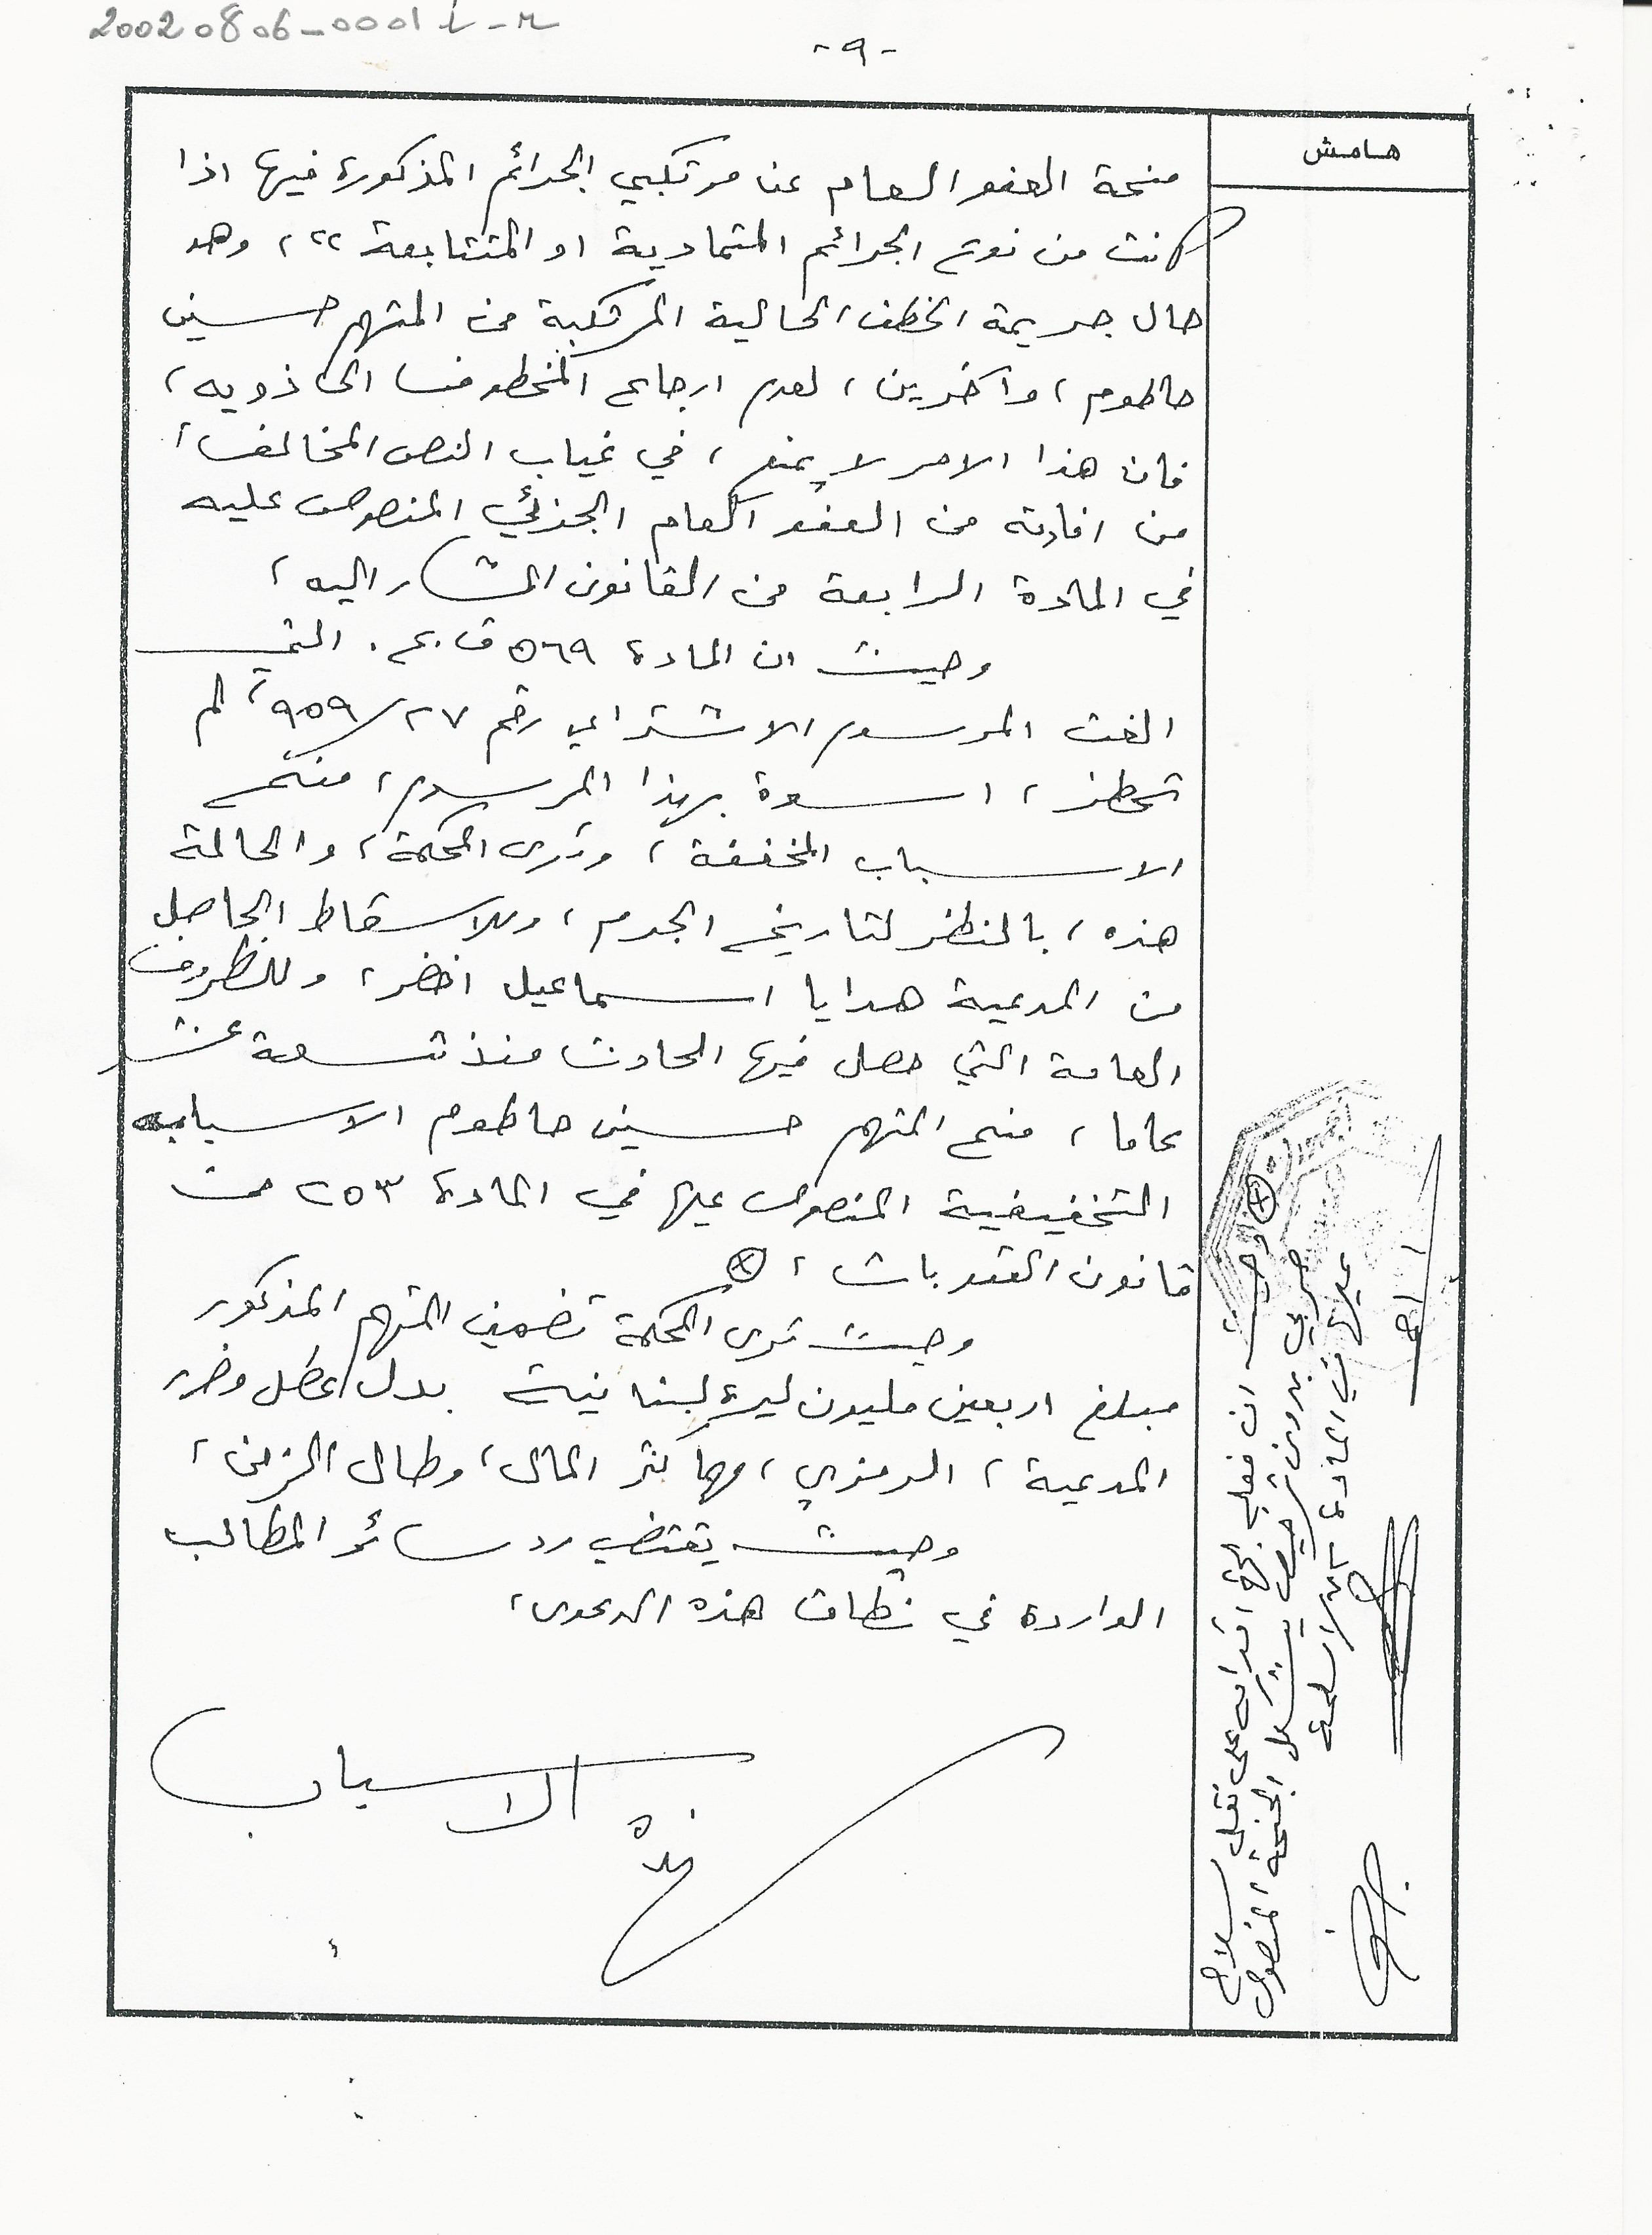 20020806-0001
-٩-
هامش
منحة العفو العام عن مرتكبي الجرائم المذكورة فيها اذا
كانت من نوع الجرائم المتمادية او المتتابعة"، وهو
حال جريمة الخطف الحالية المرتكبة من المتهم حسين
حاطوم، وآخرين، لعدم ارجاع المخطوف الى ذويه،
فان هذا الامر لا يمنع، في غياب النص المخالف،
من افادته من العفو العام الجزئي المنصوص عليه
في المادة الرابعة من القانون المشار اليه،
وحيث ان المادة ٥٦٩ ق.ع. التي
الغت المرسوم الاشتراعي رقم ٢٧/٩٥٩، لم
تحظر، اسوة بهذا المرسوم، منح
الاسباب المخففة، وترى المحكمة، والحالة
هذه، بالنظر لتاريخ الجرم، وللاسقاط الحاصل
من المدعية هدايا اسماعيل اخضر، وللظروف
العامة التي حصل فيها الحادث منذ تسعة عشر
عاما، منح المتهم حسين حاطوم الاسباب
التخفيفية المنصوص عليها في المادة ٢٥٣ من
قانون العقوبات، ⊗
وحيث ترى المحكمة تضمين المتهم المذكور
مبلغ اربعين مليون ليرة لبنانية بدل عطل وضرر
المدعية، الرمزي، مهما كثر المال، وطال الزمن،
وحيث يقتضي رد سائر المطالب
الواردة في نطاق هذه الدعوى،
لهذه
الاسباب
⊗ وحيث ان فعله لجهة اقدامه على نقل سلاح
حربي بدون ترخيص يشكل الجنحة المنصوص
عليها في المادة ٧٣ اسلحة